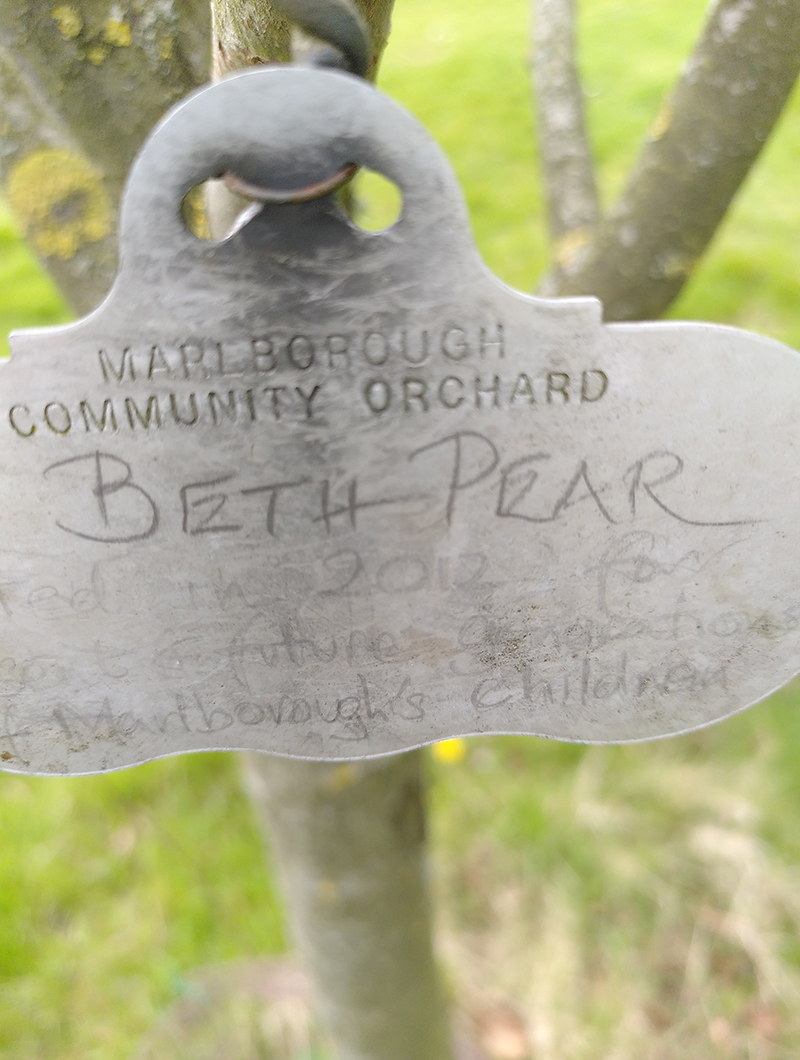 MARLBOROUGH
COMMUNITY ORCHARD
BETH PEAR
in 2012 for
future generations
Marlborough's children